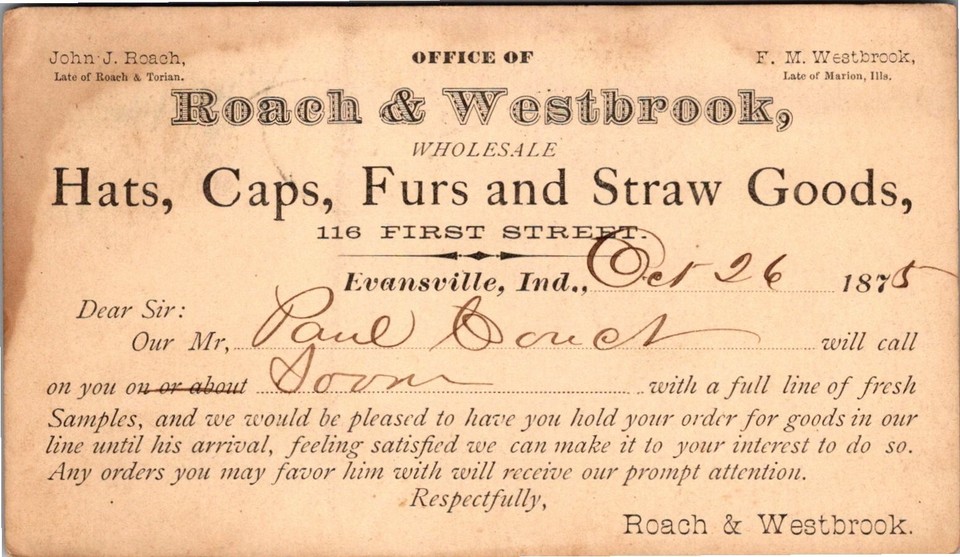 John J. Roach,
Late of Roach & Torian.
OFFICE OF
F. M. Westbrook,
Late of Marion, Ills.
Roach & Westbrook,
WHOLESALE
Hats, Caps, Furs and Straw Goods,
116 FIRST STREET.
Evansville, Ind., Oct 26 1875
Dear Sir:
Our Mr, Paul Couch will call
on you on or about Soon with a full line of fresh
Samples, and we would be pleased to have you hold your order for goods in our
line until his arrival, feeling satisfied we can make it to your interest to do so.
Any orders you may favor him with will receive our prompt attention.
Respectfully,
Roach & Westbrook.